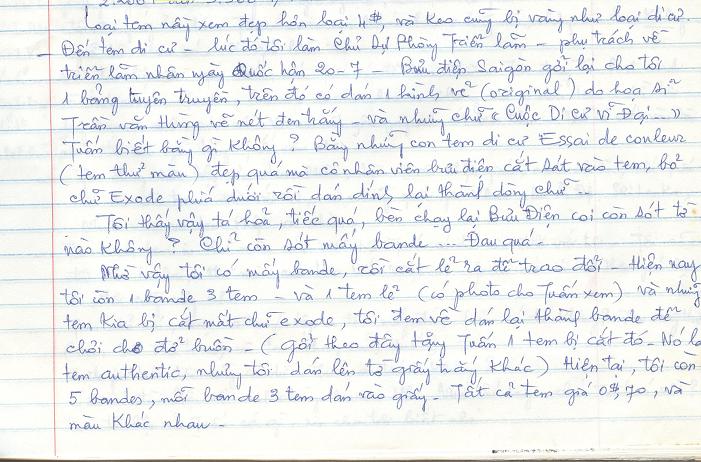 Loại tem nầy xem đẹp hơn loại 4$, và keo cũng bị vàng như loại di cư.
- Đến tem di cư - lúc đó tôi làm Chủ Sự Phòng Triển lãm - phụ trách về
triển lãm nhân ngày Quốc hận 20-7 - Bưu điện Saigon gởi lại cho tôi
1 bảng tuyên truyền, trên đó có dán 1 hình vẽ (original) do họa sĩ
Trần văn Thừng vẽ nét đen trắng - và những chữ « Cuộc Di cư vĩ Đại...»
Tuấn biết bằng gì không? Bằng những con tem di cư Essai de couleur
(tem thử màu) đẹp quá mà cô nhân viên bưu điện cắt sát vào tem, bỏ
chữ Exode phía dưới rồi dán dính lại thành dòng chữ...
Tôi thấy vậy tá hỏa, tiếc quá, bèn chạy lại Bưu Điện coi còn sót tờ
nào không? Chỉ còn sót mấy bande ... Đau quá.
Nhờ vậy tôi có mấy bande, rồi cắt lẻ ra để trao đổi - Hiện nay
tôi còn 1 bande 3 tem - và 1 tem lẻ (có photo cho Tuấn xem) và những
tem kia bị cắt mất chữ exode, tôi đem về dán lại thành bande để
chơi cho đỡ buồn - (gởi theo đây tặng Tuấn 1 tem bị cắt đó - Nó là
tem authentic, nhưng tôi dán lên tờ giấy trắng khác) Hiện tại, tôi còn
5 bandes, mỗi bande 3 tem dán vào giấy - Tất cả tem giá 0$,70, và
màu khác nhau -